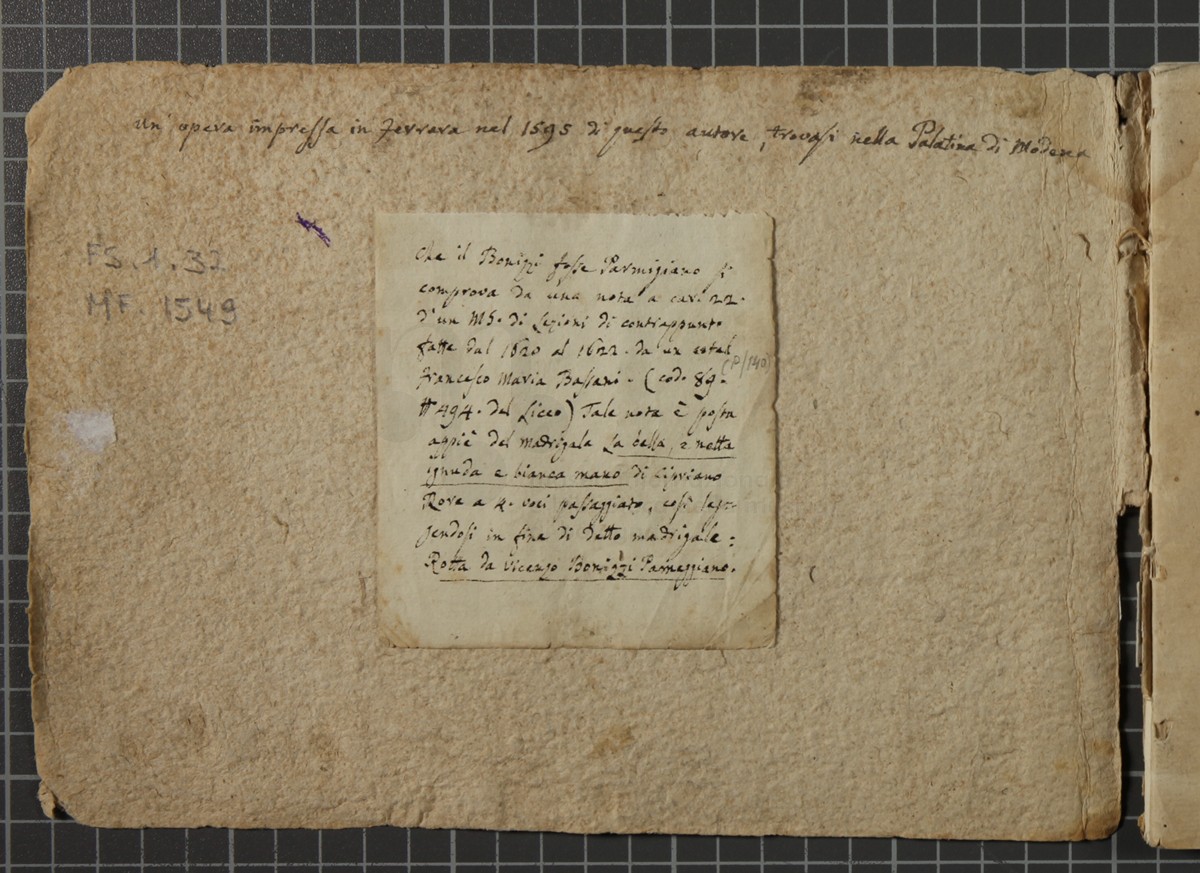 Un' opera impressa in Ferrara nel 1595 di questo autore, trovasi nella Palatina di Modena
FS.1.32
MF. 1549
Che il Bonizzi fosse Parmigiano si
comprova da una nota a car. 22.
d'un MS. di Lezioni di contrappunto
fatte dal 1620 al 1622. da un cotal
(P/140)
Francesco Maria Bassani. (cod. 89.
#494. del Liceo) Tale nota è posta
appiè del madrigale La bella, e netta
ignuda e bianca mano di Cipriano
Rore a 4. voci passaggiato, così leg-
gendosi in fine di detto madrigale:
Rotta da Vicenzo Bonizzi Parmeggiano.